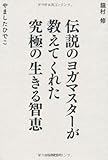 龍村 修
伝説のヨガマスターが
教えてくれた
究極の生きる智恵
やましたひでこ